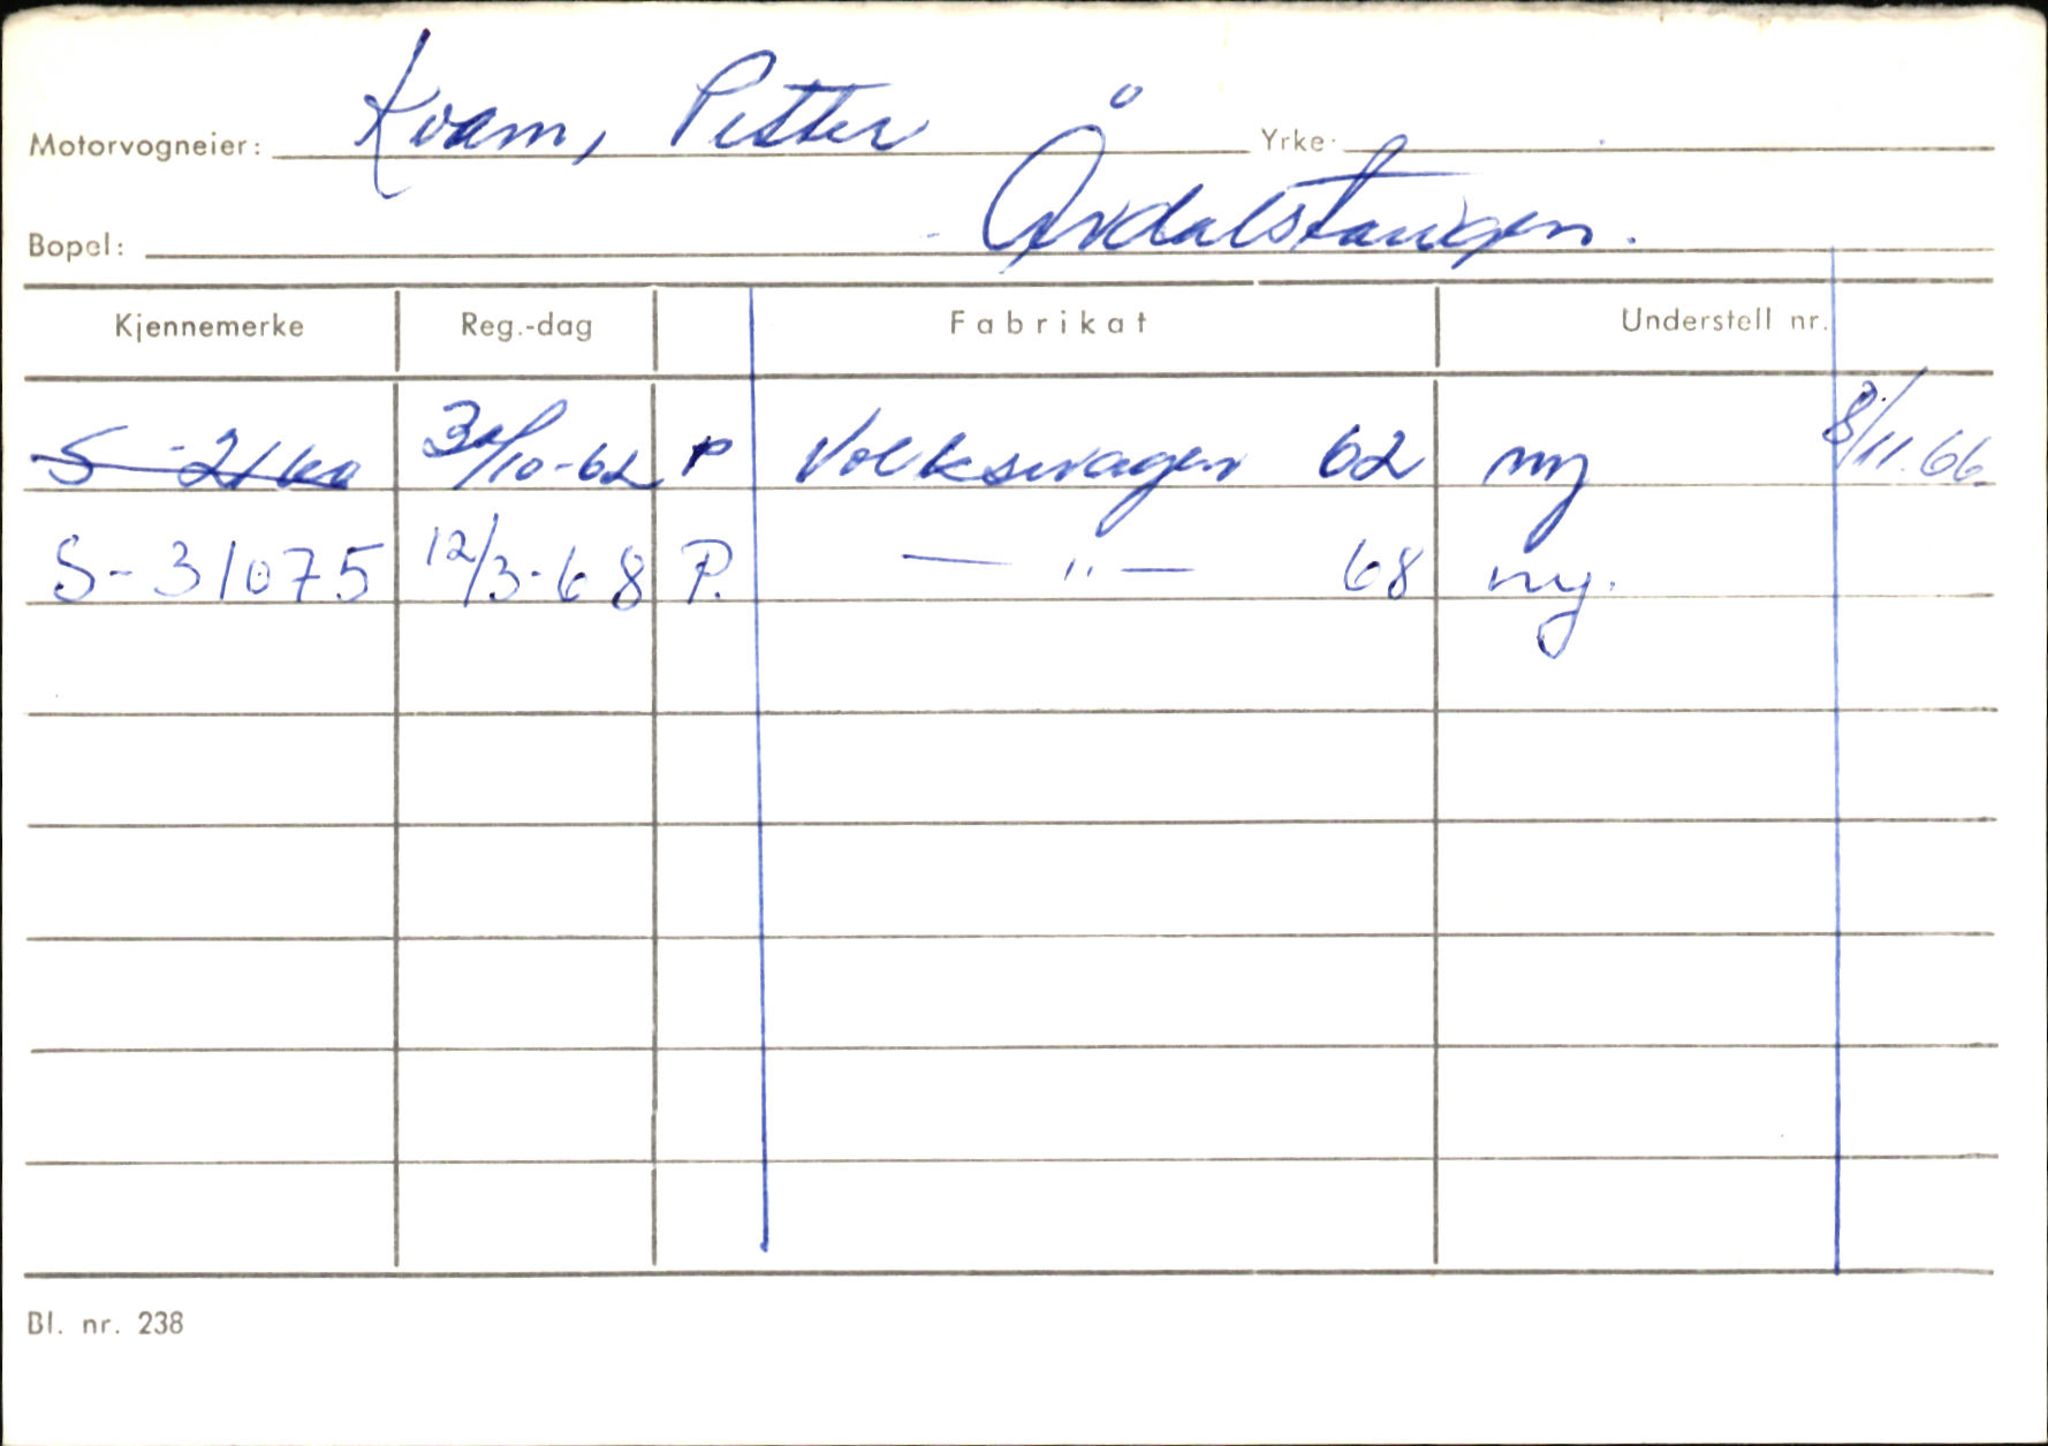 Motorvogneier: Kvam, Petter Yrke:
Bopel: Årdalstangen.
Kjennemerke Reg.-dag Fabrikat Understell nr.
S-2160 30/10-62 P Volkswagen 62 ny 8/11.66.
S-31075 12/3-68 P. — " — 68 ny.
Bl. nr. 238